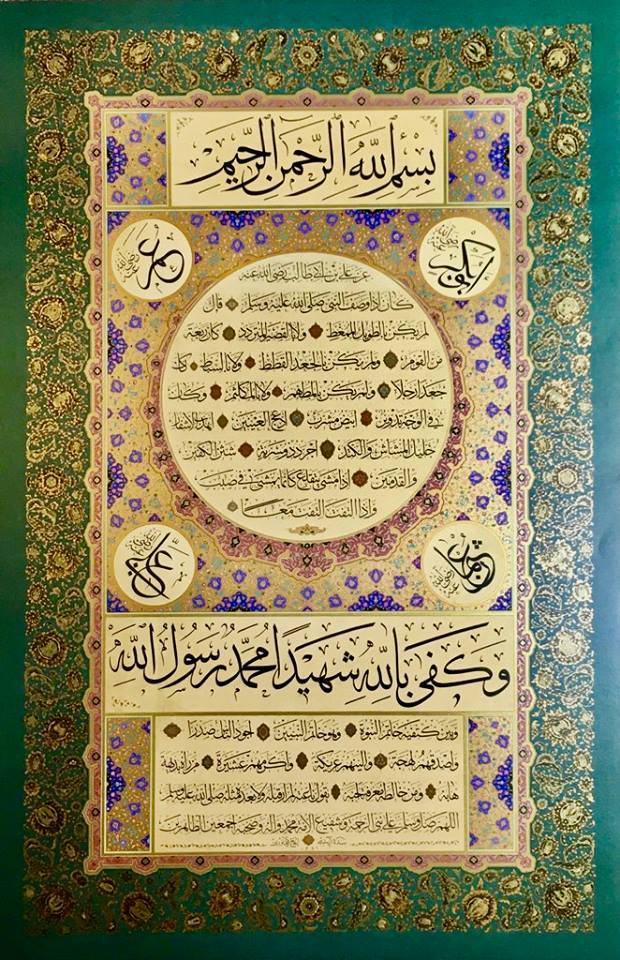 بسم الله الرحمن الرحيم
أبوبكر رضي الله عنه
عمر رضي الله عنه
عن علي بن أبي طالب رضي الله عنه
كان إذا وصف النبي صلى الله عليه وسلم قال
لم يكن بالطويل الممغط ولا بالقصير المتردد كان ربعة
من القوم ولم يكن بالجعد القطط ولا بالسبط كان
جعدا رجلا ولم يكن بالمطهم ولا بالمكلثم وكان
في الوجه تدوير أبيض مشرب أدعج العينين أهدب الأشفار
جليل المشاش والكتد أجرد ذو مسربة شثن الكفين
والقدمين إذا مشى يتقلع كأنما يمشي في صبب
وإذا التفت التفت معا
عثمان رضي الله عنه
علي رضي الله عنه
وكفى بالله شهيدا محمد رسول الله
وبين كتفيه خاتم النبوة وهو خاتم النبيين أجود الناس صدرا
وأصدقهم لهجة وألينهم عريكة وأكرمهم عشيرة من رآه بديهة
هابه ومن خالطه معرفة أحبه يقول ناعته لم أر قبله ولا بعده مثله صلى الله عليه وسلم
اللهم صل وسلم على نبي الرحمة وشفيع الأمة محمد وآله وصحبه أجمعين الطاهرين